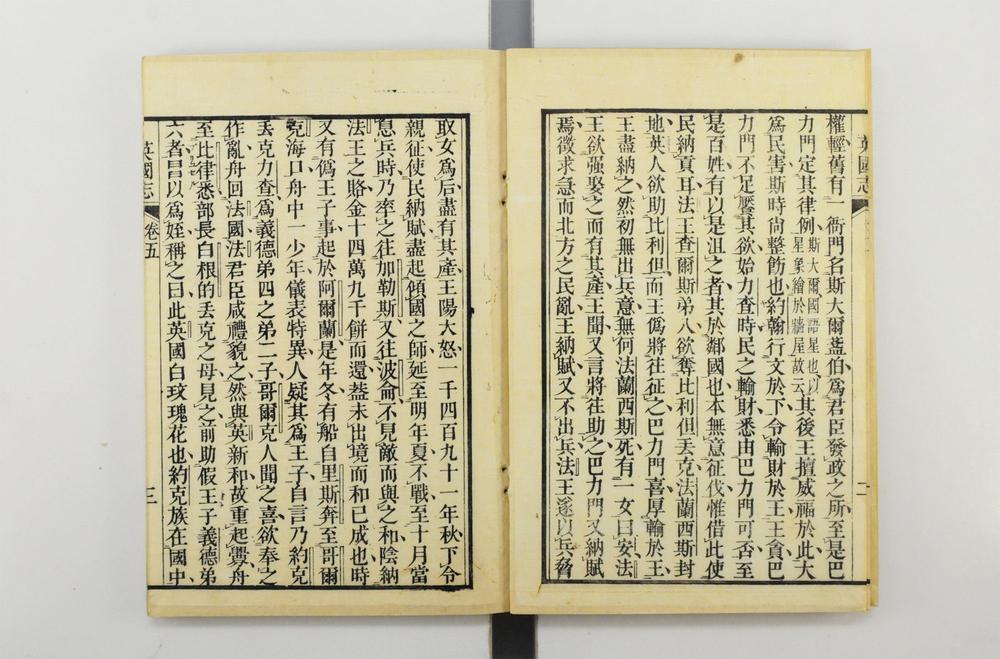 權輕舊有一衙門名斯大爾盞伯爲君臣發政之所至是巴
力門定其律例斯大爾國語星也以星象繪於牆屋故云其後王擅威福於此大
爲民害斯時尙整飭也約翰行文於下令輸財於王王貪巴
力門不足饜其欲始力查時民之輸財悉由巴力門可否至
是百姓有以是沮之者其於鄰國也本無意征伐惟借此使
民納貢耳法王查爾斯弟八欲奪比利但丟克法蘭西斯封
地英人欲助比利但而王僞將往征之巴力門喜厚輸於王
王盡納之然初無出兵意無何法蘭西斯死有一女曰安法
王欲强娶之而有其產王聞又言將往助之巴力門又納賦
焉徵求急而北方之民亂王納賦又不出兵法王遂以兵脅
英國志
二
取女爲后盡有其產王陽大怒一千四百九十一年秋下令
親征使民納賦盡起傾國之師延至明年夏不戰至十月當
息兵時乃率之往加勒斯又往波侖不見敵而與之和陰納
法王之賂金十四萬九千餠而還葢未出境而和已成也時
又有僞王子事起於阿爾蘭是年冬有船自里斯奔至哥爾
克海口舟中一少年儀表特異人疑其爲王子自言乃約克
丟克力查爲義德弟四之弟二子哥爾克人聞之喜欲奉之
作亂舟回法國法君臣咸禮貌之然與英新和故重起釁舟
至比律悉部長白根的丟克之母見之前助假王子義德弟
六者冒以爲姪稱之曰此英國白玫瑰花也約克族在國中
英國志
卷五
三